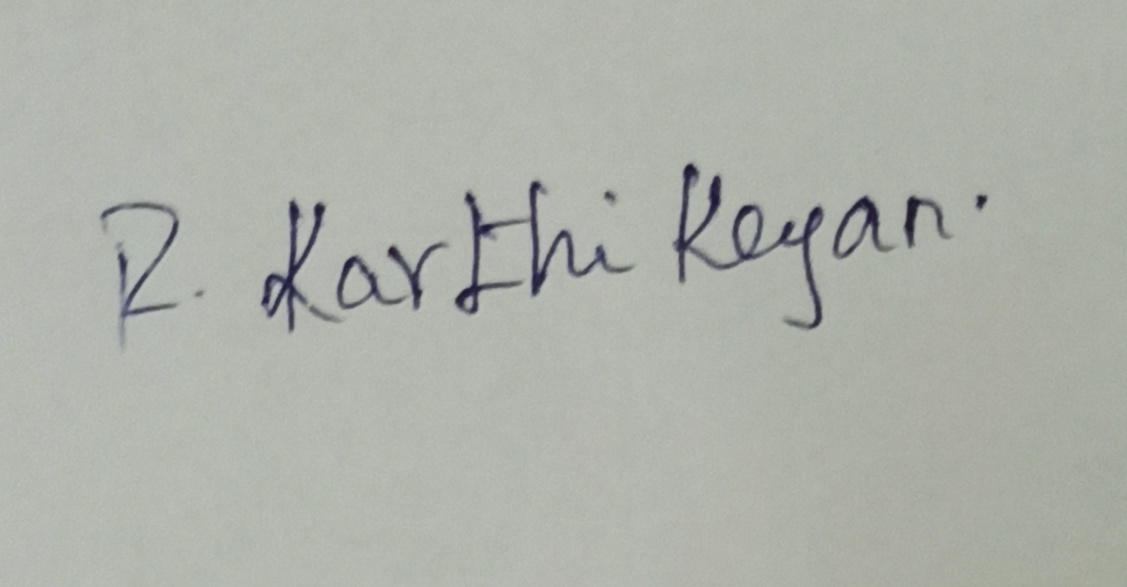 R. Karthi Keyan.